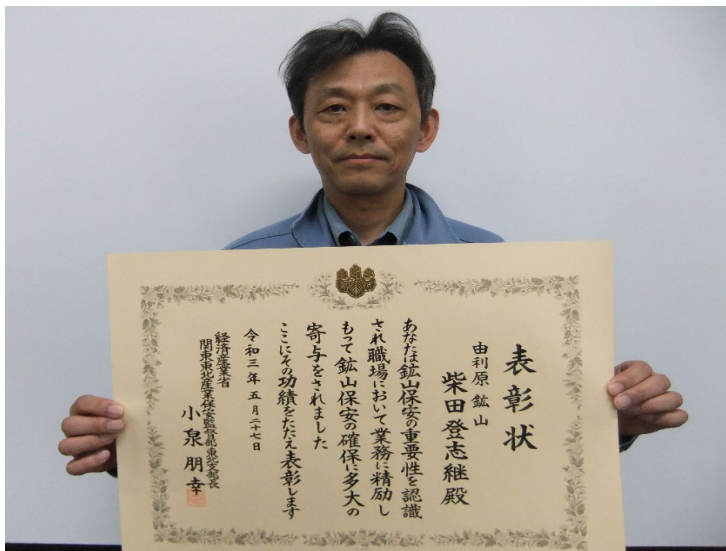 表彰状
由利原鉱山
柴田登志継殿
あなたは鉱山保安の重要性を認識
され職場において業務に精励し
もって鉱山保安の確保に多大の
寄与をされました
ここにその功績をたたえ表彰します
令和三年五月二十七日
経済産業省
関東東北産業保安監督部東北支部長
小泉朋幸